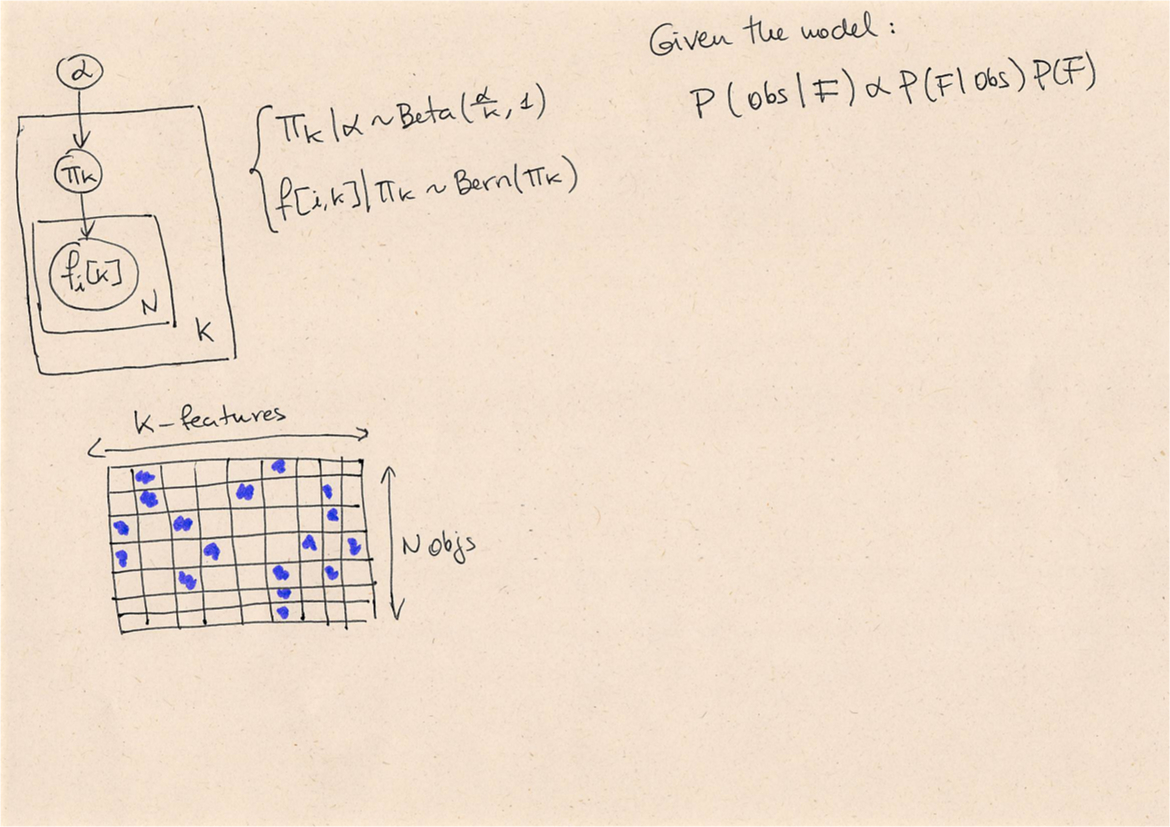 α
πk
fi[k]
N
K
πk | α ~ Beta(α/k, 1)
f[i,k] | πk ~ Bern(πk)
Given the model :
P(obs | F) α P(F | obs) P(F)
K-features
N objs